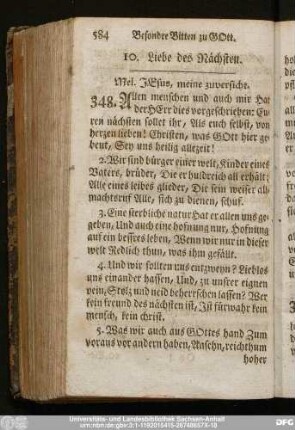 584 Besondre Bitten zu GOtt.
10. Liebe des Nächsten.
Mel. JEsus, meine zuversicht.
348. Allen menschen und auch mir Hat
der HErr dies vorgeschrieben: Eu-
ren nächsten sollet ihr, Als euch selbst, von
herzen lieben! Christen, was GOtt hier ge-
beut, Sey uns heilig allezeit!
2. Wir sind bürger einer welt, Kinder eines
Vaters, brüder, Die er huldreich all erhält;
Alle eines leibes glieder, Die sein weiser all-
machtsruf Alle, sich zu dienen, schuf.
3. Eine sterbliche natur Hat er allen uns ge-
geben, Und auch eine hofnung nur, Hofnung
auf ein bessres leben, Wenn wir nur in dieser
welt Redlich thun, was ihm gefällt.
4. Und wir sollten uns entzweyn? Lieblos
uns einander hassen, Und, zu unsrer eignen
pein, Stolz und neid beherrschen lassen? Wer
kein freund des nächsten ist, Ist fürwahr kein
mensch, kein christ.
5. Was wir auch aus GOttes hand Zum
voraus vor andern haben, Ansehn, reichthum
hoher
Universitäts- und Landesbibliothek Sachsen-Anhalt
DFG